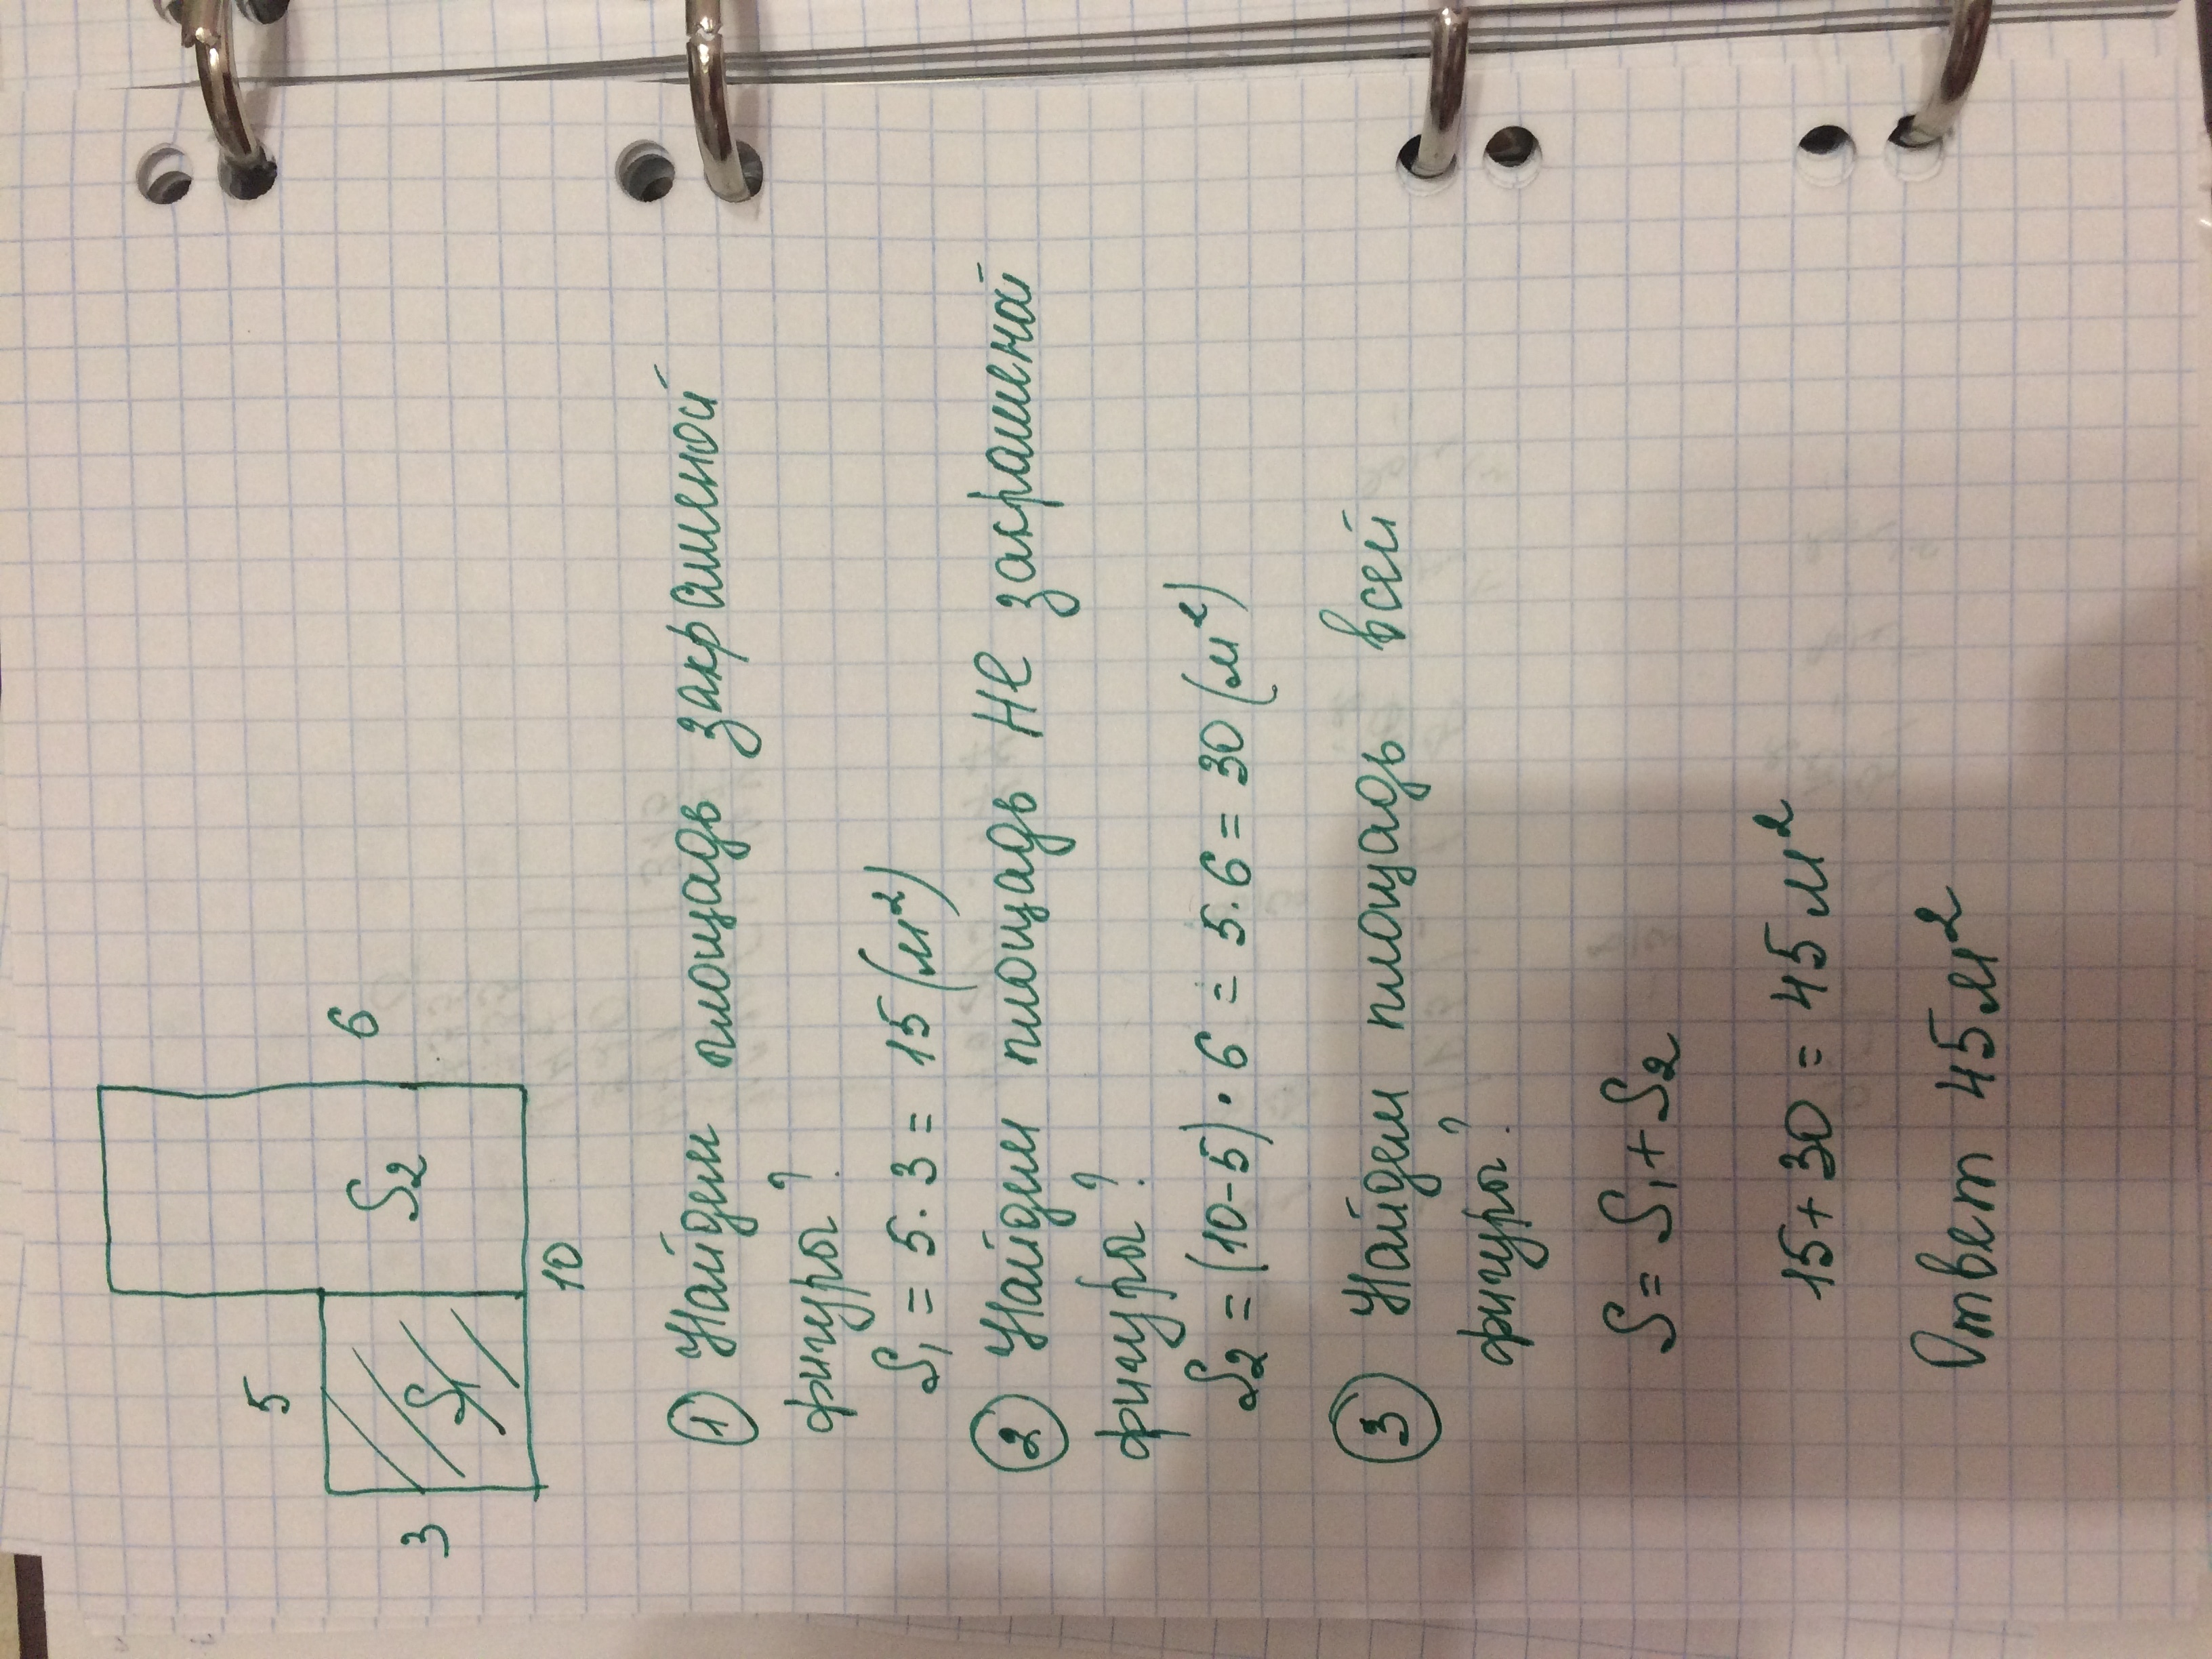 5
3
S1
S2
6
10
① Найдем площадь закрашеной
фигуры?
S1 = 5 · 3 = 15 (м²)
② Найдем площадь не закрашеной
фигуры?
S2 = (10-5) · 6 = 5 · 6 = 30 (м²)
③ Найдем площадь всей
фигуры?
S = S1 + S2
15 + 30 = 45 м²
Ответ 45 м²